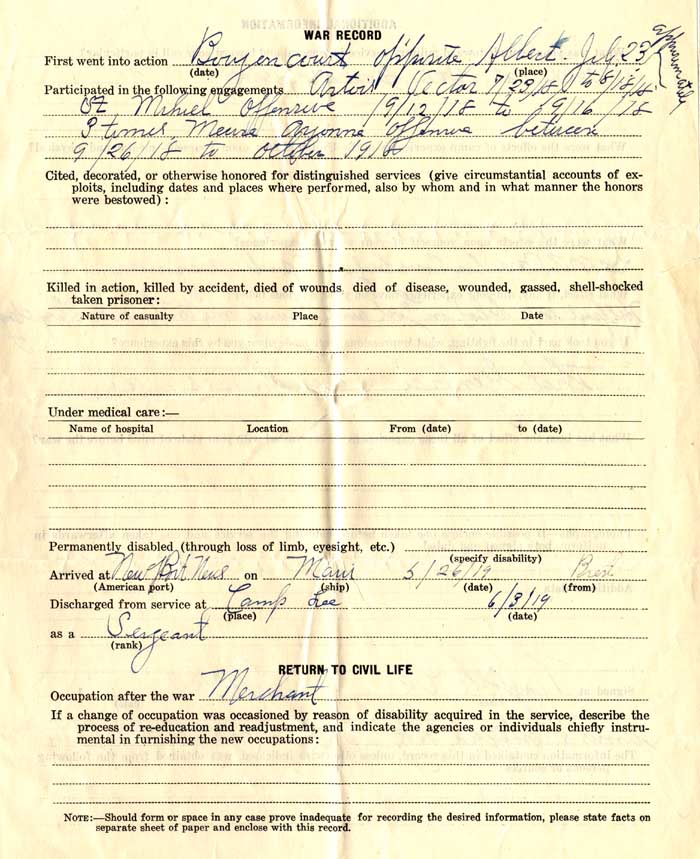 WAR RECORD
First went into action Bouzencourt opposite Albert. July 23 approximately
(date) (place)
Participated in the following engagements Artois Sector 7/23/18 to 8/18/18
St Mihiel Offensive 9/12/18 to 9/16/18
3 times Meuse Argonne Offensive between
9/26/18 to October 1918
Cited, decorated, or otherwise honored for distinguished services (give circumstantial accounts of ex-
ploits, including dates and places where performed, also by whom and in what manner the honors
were bestowed) :
Killed in action, killed by accident, died of wounds died of disease, wounded, gassed, shell-shocked
taken prisoner:
Nature of casualty Place Date
Under medical care:—
Name of hospital Location From (date) to (date)
Permanently disabled (through loss of limb, eyesight, etc.)
(specify disability)
Arrived at New Port News on 5/26/19
(American port) (ship) (date) (from)
Discharged from service at Camp Lee 6/3/19
(place) (date)
as a Sergeant
(rank)
RETURN TO CIVIL LIFE
Occupation after the war Merchant
If a change of occupation was occasioned by reason of disability acquired in the service, describe the
process of re-education and readjustment, and indicate the agencies or individuals chiefly instru-
mental in furnishing the new occupations:
NOTE:—Should form or space in any case prove inadequate for recording the desired information, please state facts on
separate sheet of paper and enclose with this record.